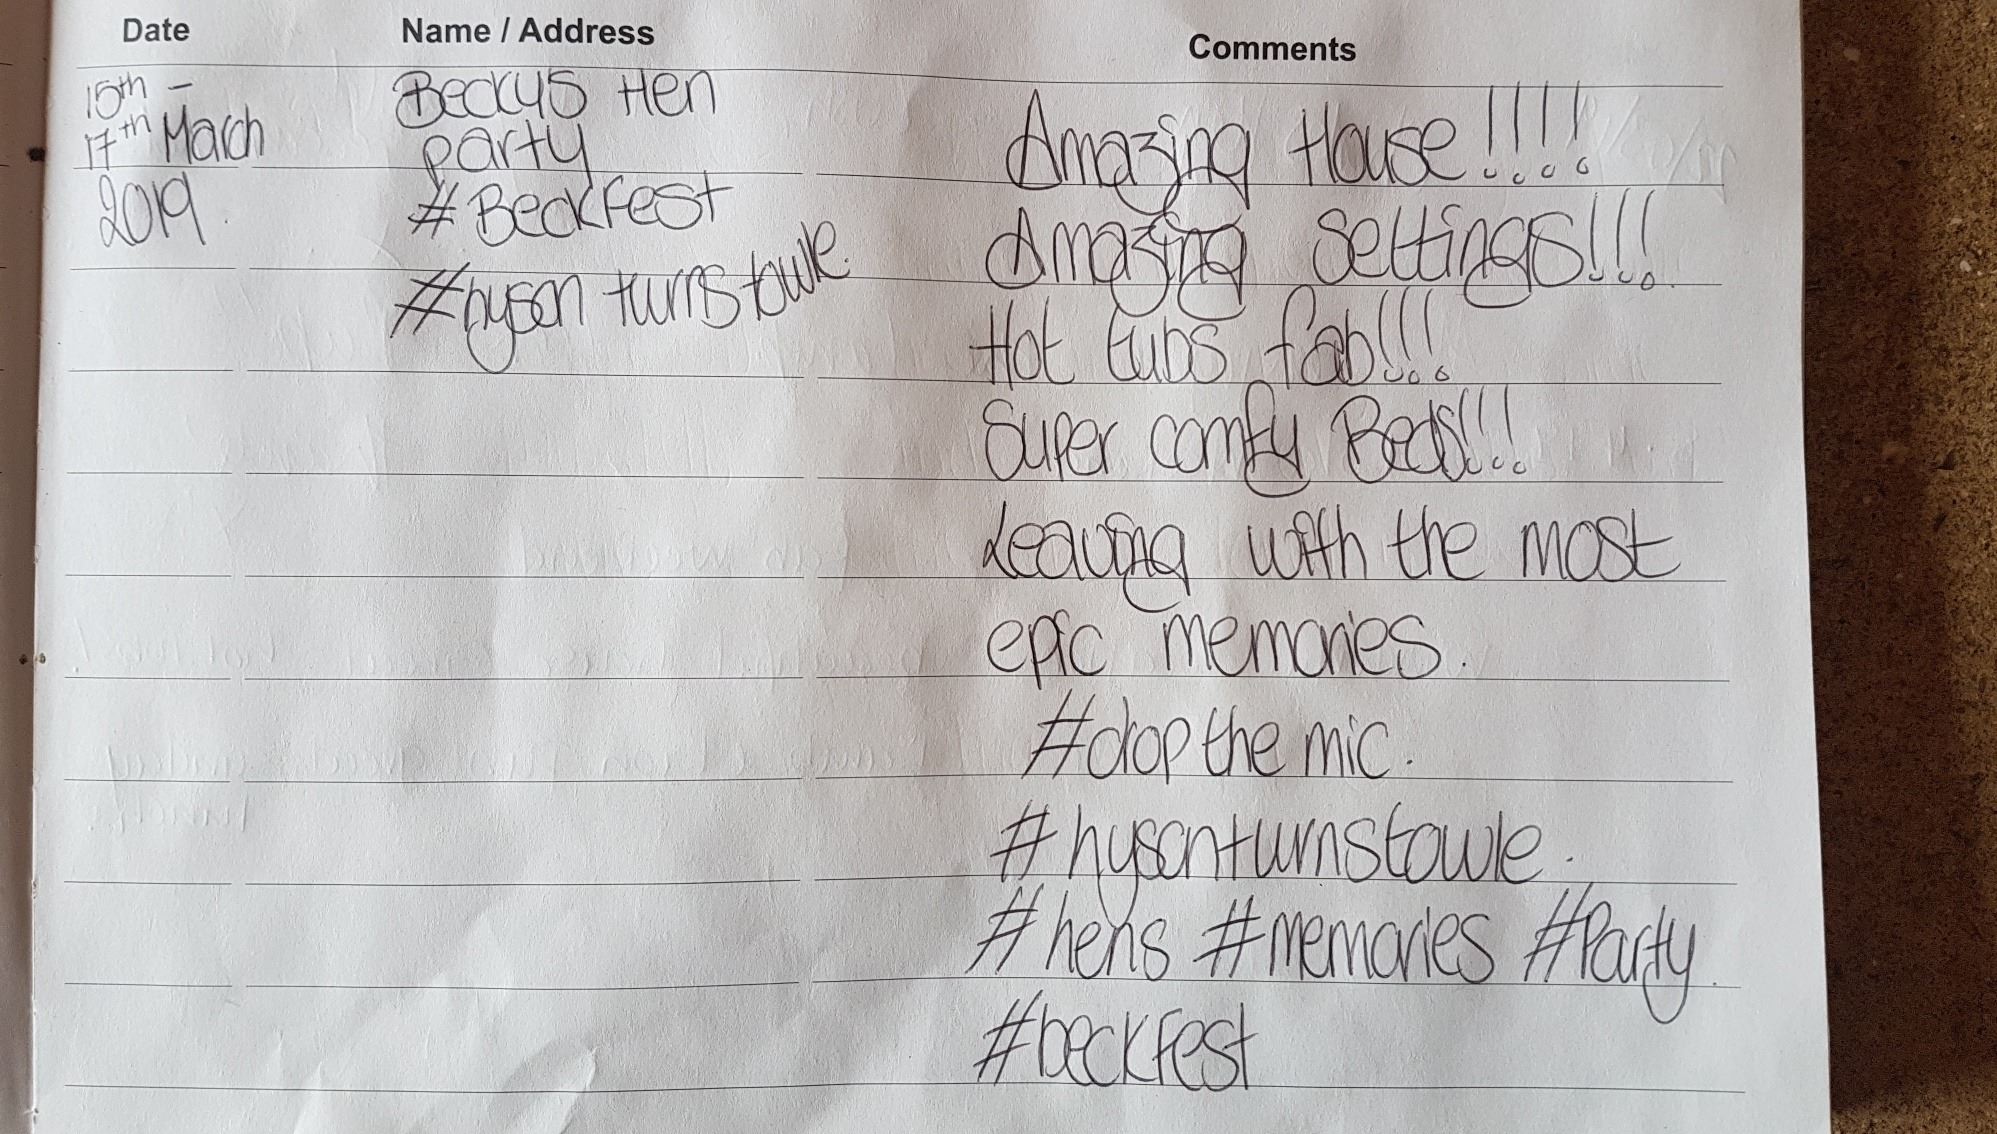 Date Name / Address Comments
15th –
17th March
2019.
Beckys Hen
party
#Beckfest
#hyson turnstowle.
Amazing House!!!!
Amazing Settings!!!
Hot tubs fab!!!
Super comfy Beds!!!
Leaving with the most
epic memories.
#drop the mic.
#hysonturnstowle.
#hens #memories #Party.
#beckfest